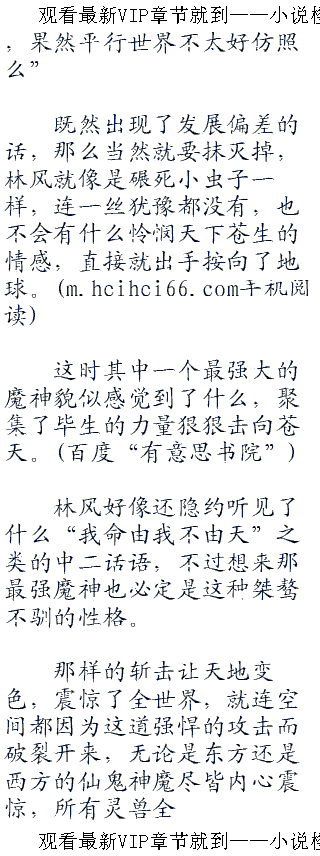 观看最新VIP章节就到——小说楼
，果然平行世界不太好仿照
么”
既然出现了发展偏差的
话，那么当然就要抹灭掉，
林风就像是碾死小虫子一
样，连一丝犹豫都没有，也
不会有什么怜悯天下苍生的
情感，直接就出手按向了地
球。(m.hcihci66.com手机阅
读)
这时其中一个最强大的
魔神貌似感觉到了什么，聚
集了毕生的力量狠狠击向苍
天。(百度“有意思书院”)
林风好像还隐约听见了
什么“我命由我不由天”之
类的中二话语，不过想来那
最强魔神也必定是这种桀骜
不驯的性格。
那样的斩击让天地变
色，震惊了全世界，就连空
间都因为这道强悍的攻击而
破裂开来，无论是东方还是
西方的仙鬼神魔尽皆内心震
惊，所有灵兽全
观看最新VIP章节就到——小说